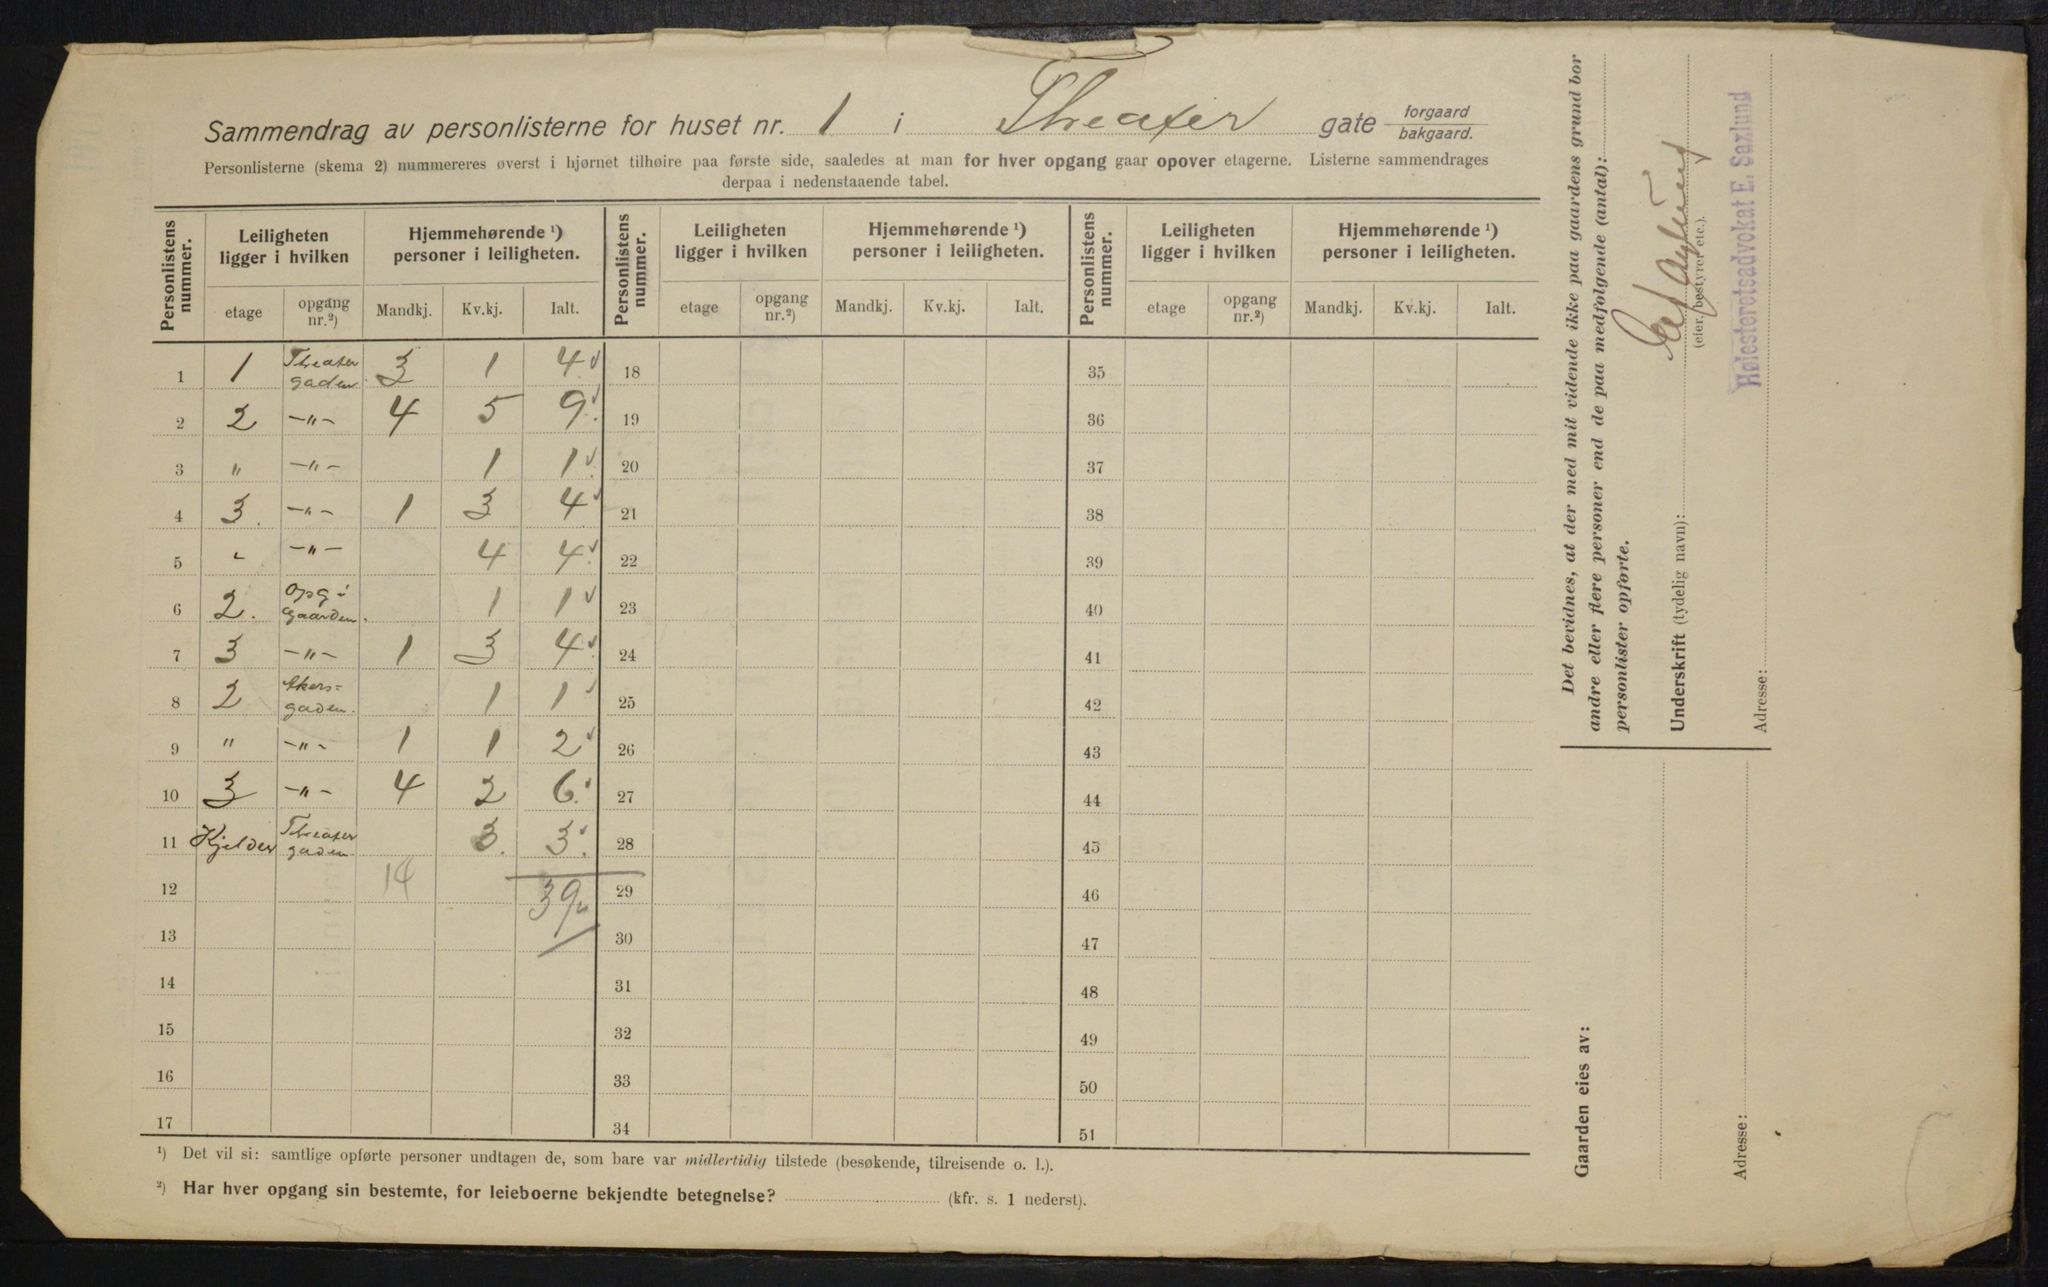 Sammendrag av personlisterne for huset nr. 1 i Theater gate forgaard
bakgaard.
Personlisterne (skema 2) nummereres øverst i hjørnet tilhøire paa første side, saaledes at man for hver opgang gaar opover etagerne. Listerne sammendrages
derpaa i nedenstaaende tabel.
Personlistens nummer. Leiligheten ligger i hvilken Hjemmehørende ¹) personer i leiligheten. Personlistens nummer. Leiligheten ligger i hvilken Hjemmehørende ¹) personer i leiligheten. Personlistens nummer. Leiligheten ligger i hvilken Hjemmehørende ¹) personer i leiligheten.
etage opgang nr.²) Mandkj. Kv.kj. Ialt. etage opgang nr.²) Mandkj. Kv.kj. Ialt. etage opgang nr.²) Mandkj. Kv.kj. Ialt.
1 1 Theater gaden 3 1 4 18 35
2 2 -"- 4 5 9 19 36
3 " -"- 1 1 20 37
4 3. -"- 1 3 4 21 38
5 " -"- 4 4 22 39
6 2. opg i gaarden. 1 1 23 40
7 3 -"- 1 3 4 24 41
8 2 Akers= gaden. 1 1 25 42
9 " -"- 1 1 2 26 43
10 3 -"- 4 2 6 27 44
11 Kjelder Theater gaden 3. 3. 28 45
12 14 39 29 46
13 30 47
14 31 48
15 32 49
16 33 50
17 34 51
¹) Det vil si: samtlige opførte personer undtagen de, som bare var midlertidig tilstede (besøkende, tilreisende o. l.).
²) Har hver opgang sin bestemte, for leieboerne bekjendte betegnelse? (kfr. s. 1 nederst).
Det bevidnes, at der med mit vidende ikke paa gaardens grund bor
andre eller flere personer end de paa medfølgende (antal):
personlister opførte.
Underskrift (tydelig navn):
(eier, bestyrer etc.).
Høiesteretsadvokat E. Saxlund
Adresse:
Gaarden eies av:
Adresse: